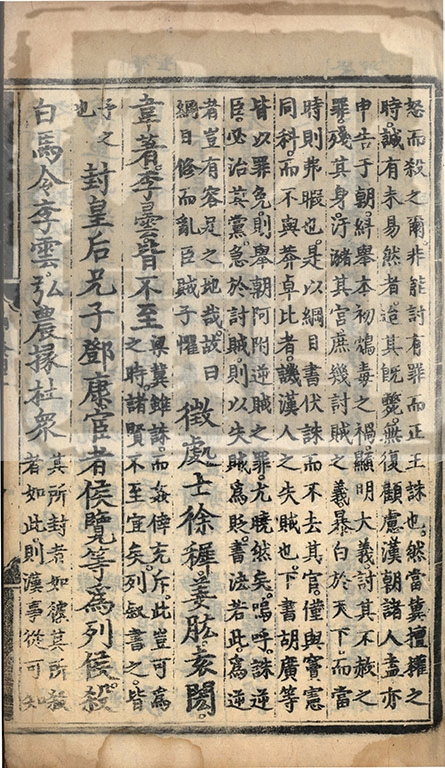 怒而殺之爾非能討有罪而正王誅也然當冀擅權之
時誠有未易然者迨其既斃無復顧慮漢朝諸人盍亦
申告于朝紏舉本初鴆毒之禍顯明大義討其不赦之
罪殘其身汙瀦其宮庶幾討賊之義暴白於天下而當
時則弗暇也是以綱目書伏誅而不去其官僅與竇憲
同科而不與莽卓比者譏漢人之失賊也下書胡廣等
皆以罪免則舉朝阿附逆賊之罪尤曉然矣嗚呼誅逆
臣必治其黨急於討賊則以失賊為貶書法若此為逆
者豈有容足之地哉故曰
綱目修而亂臣賊子懼
徵處士徐穉姜肱袁閎
韋著李曇皆不至
梁冀雖誅而姦倖充斥此豈可為
之時諸賢不至宜矣列叙書之皆
予之
也
封皇后兄子鄧康宦者侯覽等為列侯殺
白馬令李雲弘農掾杜衆
其所封者如彼其所殺
者如此則漢事從可知